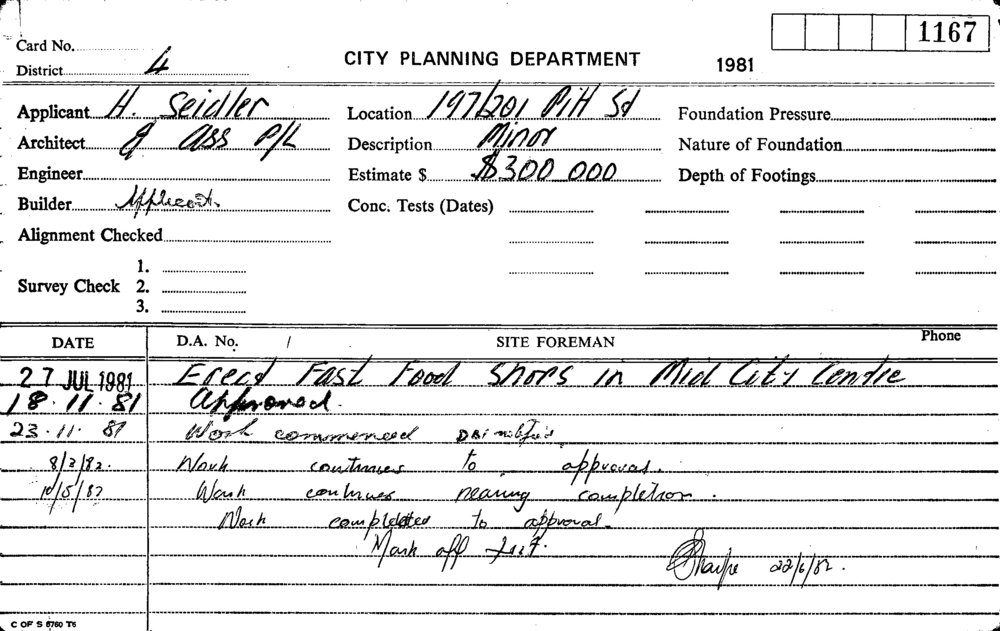 Card No. 1167
District 4 CITY PLANNING DEPARTMENT 1981
Applicant H. Seidler Location 197/201 Pitt St Foundation Pressure
Architect & Ass P/L Description Minor Nature of Foundation
Engineer Estimate $ $300 000 Depth of Footings
Builder Applicant. Conc. Tests (Dates)
Alignment Checked
1.
Survey Check 2.
3.
DATE D.A. No. / SITE FOREMAN Phone
27 JUL 1981 Erect Fast Food Shops in Mid City Centre
18.11.81 Approved.
23.11.81 Work commenced notified
8/2/82. Work continues to approval.
10/5/82 Work continues nearing completion.
Work completed to approval.
Mark off
Sharpe 22/6/82.
C OF S 6760 T6